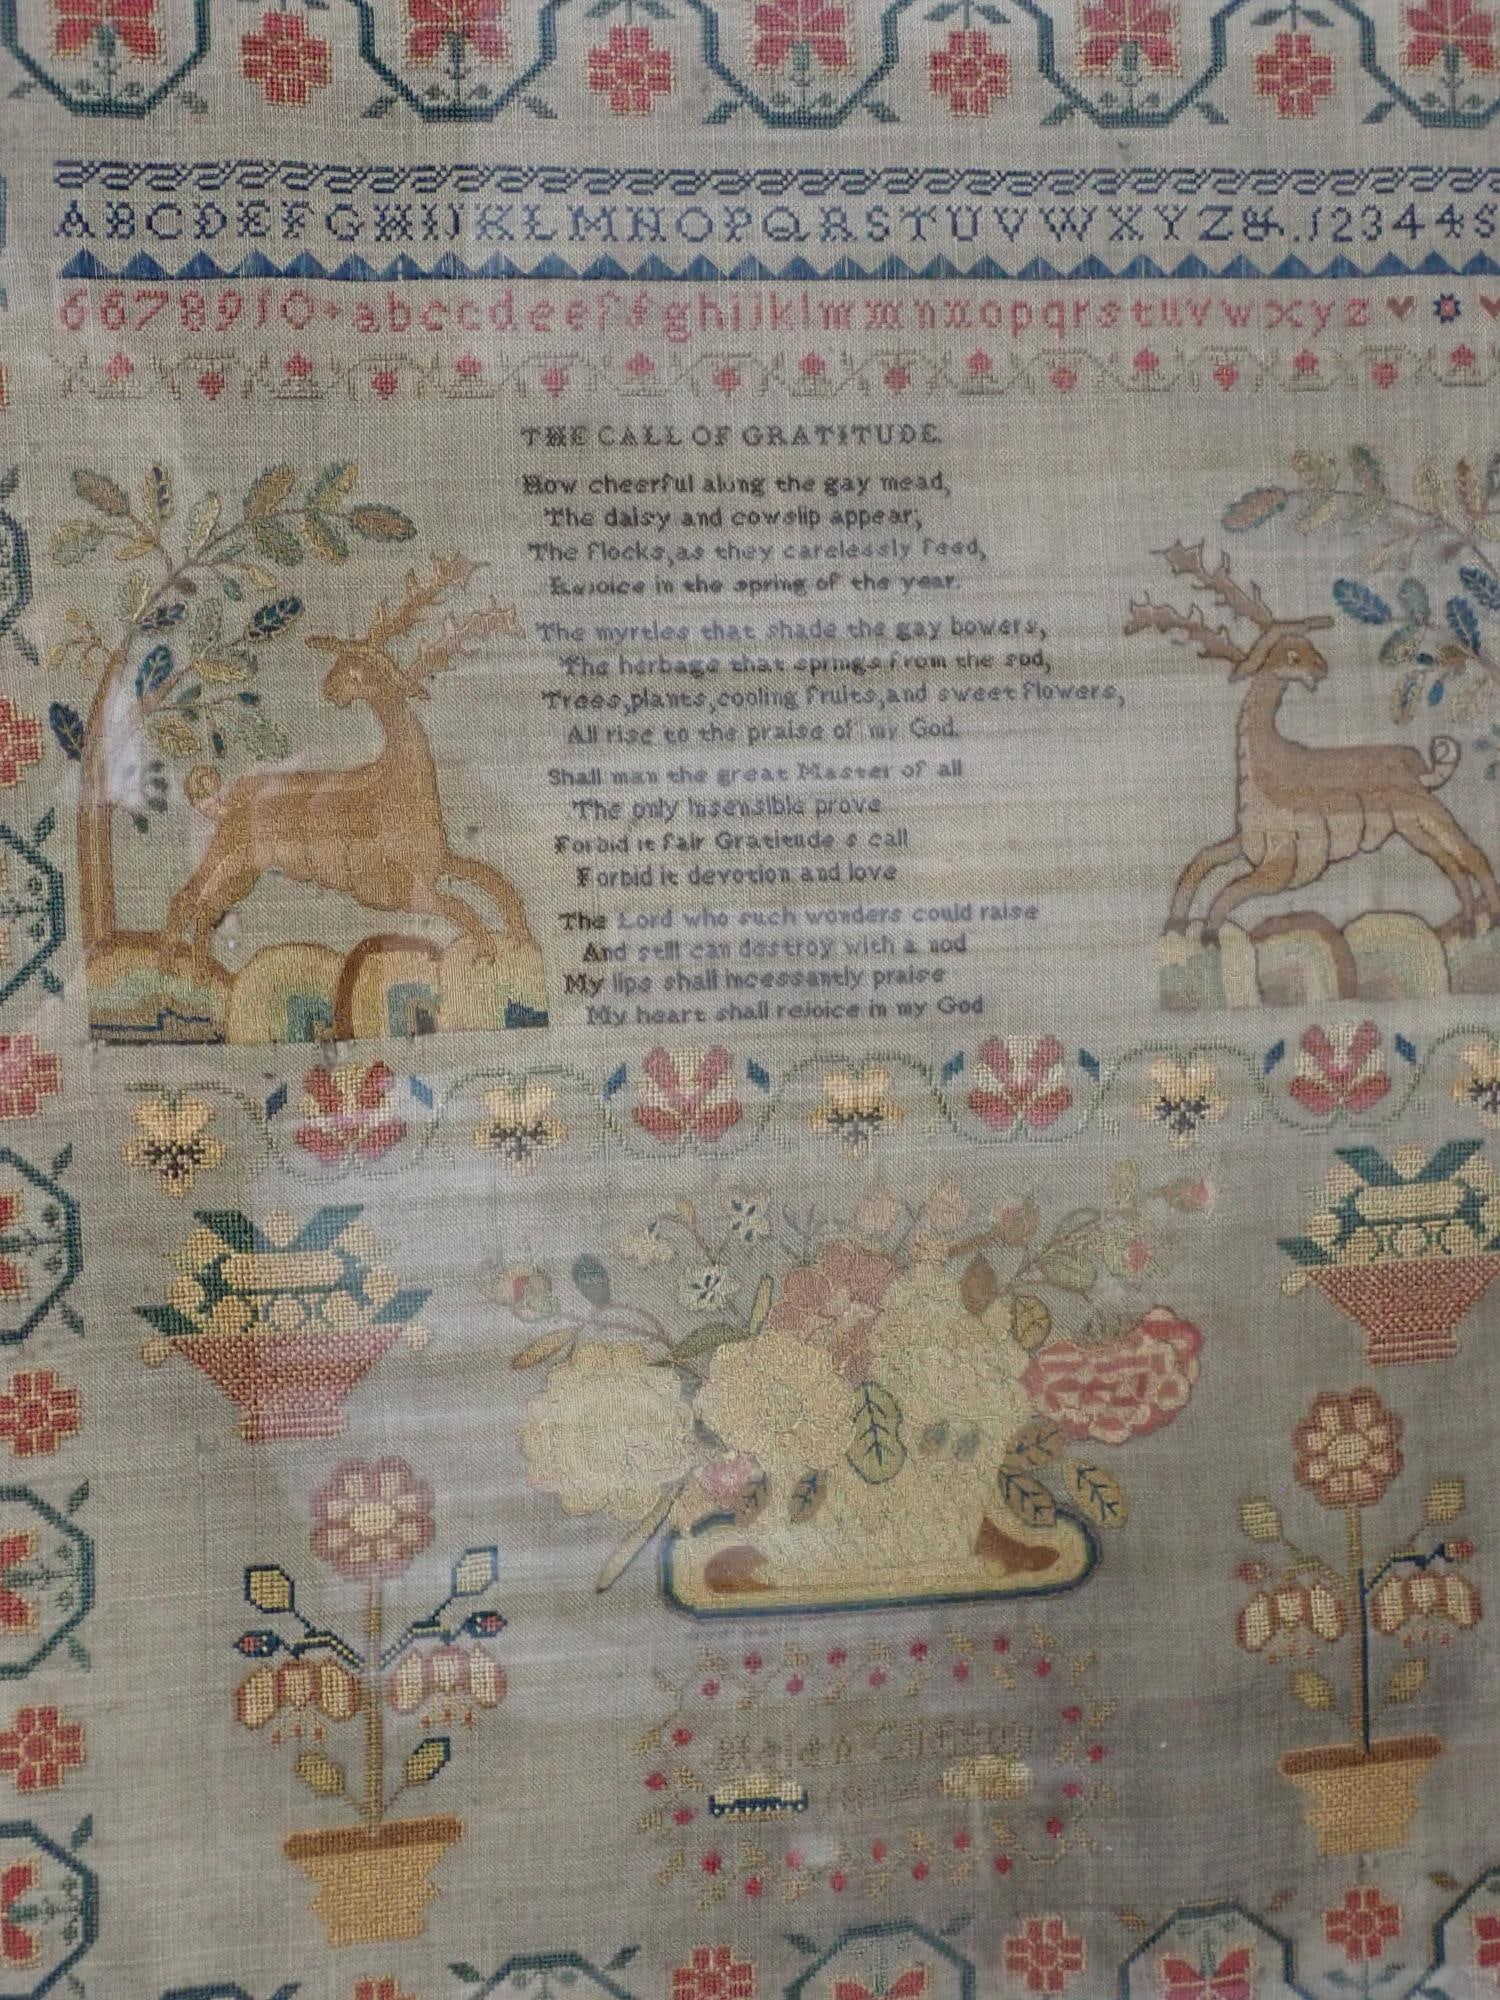 ABCDEFGHIJKLMNOPQRSTUVWXYZ&.123445
6678910abccdeeffghijklmmnnopqrstuvwxyz
THE CALL OF GRATITUDE.
How cheerful along the gay mead,
The daisy and cowslip appear;
The flocks, as they carelessly feed,
Rejoice in the spring of the year.
The myrtles that shade the gay bowers,
The herbage that springs from the sod,
Trees, plants, cooling fruits, and sweet flowers,
All rise to the praise of my God.
Shall man the great Master of all
The only insensible prove
Forbid it fair Gratitude s call
Forbid it devotion and love
The Lord who such wonders could raise
And still can destroy with a nod
My lips shall incessantly praise
My heart shall rejoice in my God
Helen